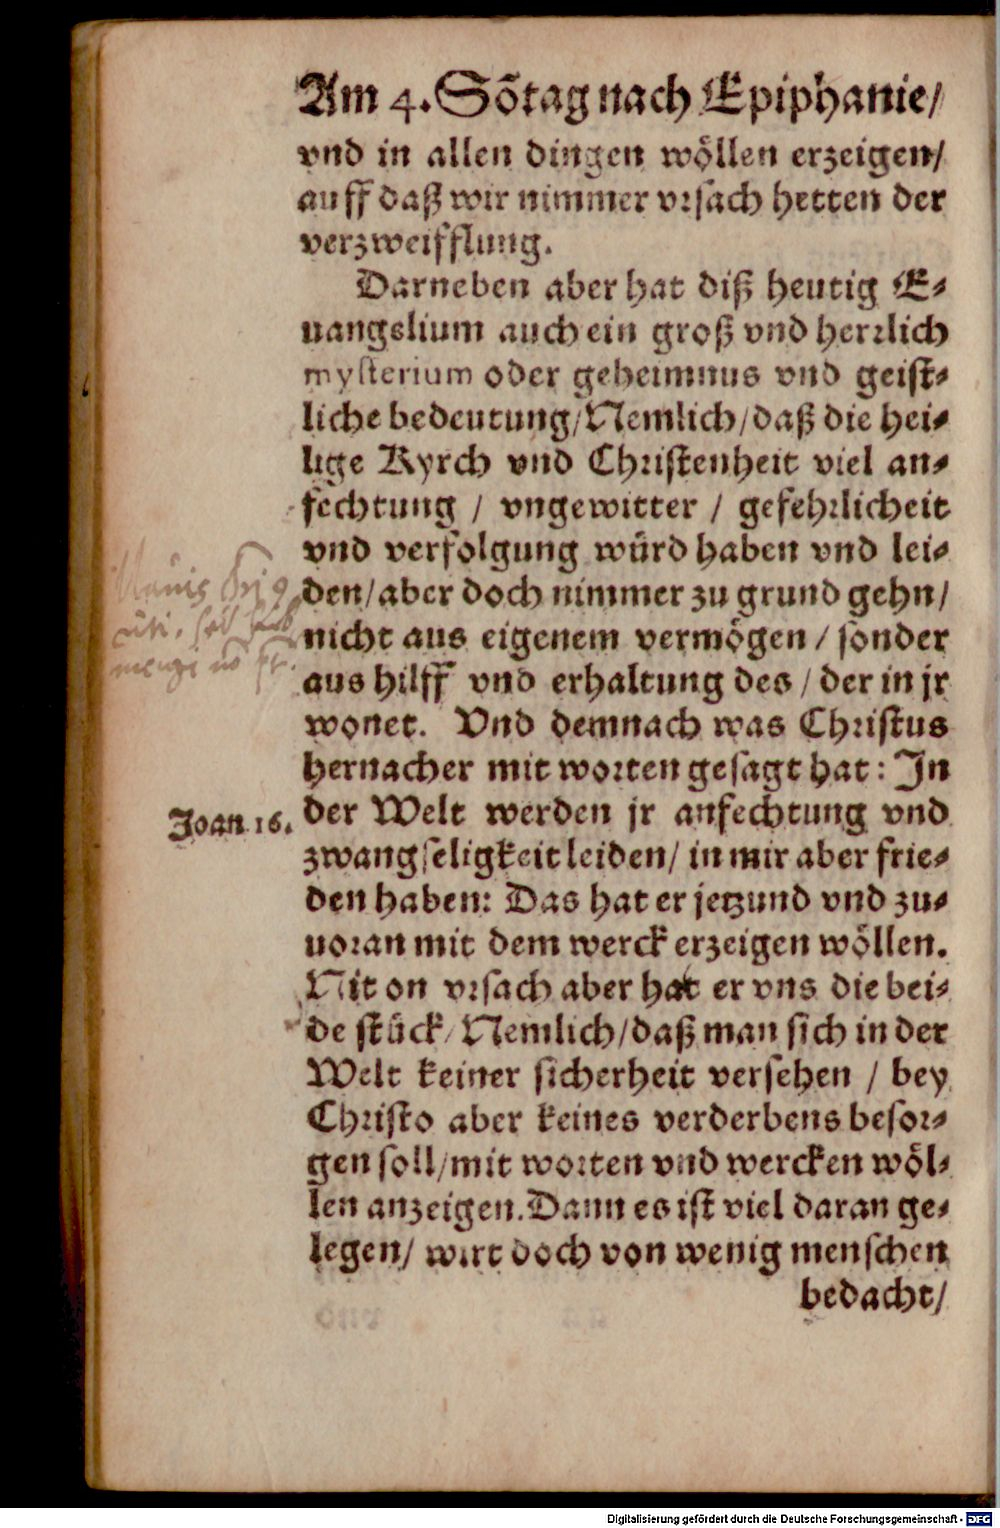 Am 4. Sõtag nach Epiphanie/
vnd in allen dingen wöllen erzeigen/
auff daß wir nimmer vrsach hetten der
verzweifflung.
Darneben aber hat diß heutig E-
uangelium auch ein groß vnd herrlich
mysterium oder geheimnus vnd geist-
liche bedeutung/ Nemlich/ daß die hei-
lige Kyrch vnd Christenheit viel an-
fechtung / vngewitter / gefehrlicheit
vnd verfolgung würd haben vnd lei-
den/ aber doch nimmer zu grund gehn/
nicht aus eigenem vermögen / sonder
aus hilff vnd erhaltung des / der in jr
wonet. Vnd demnach was Christus
hernacher mit worten gesagt hat: In
Joan 16.
der Welt werden jr anfechtung vnd
zwangseligkeit leiden/ in mir aber frie-
den haben: Das hat er jetzund vnd zu-
uoran mit dem werck erzeigen wöllen.
Nit on vrsach aber hat er vns die bei-
de stück/ Nemlich/ daß man sich in der
Welt keiner sicherheit versehen / bey
Christo aber keines verderbens besor-
gen soll/ mit worten vnd wercken wöl-
len anzeigen. Dann es ist viel daran ge-
legen/ wirt doch von wenig menschen
bedacht/
Digitalisierung gefördert durch die Deutsche Forschungsgemeinschaft - DFG